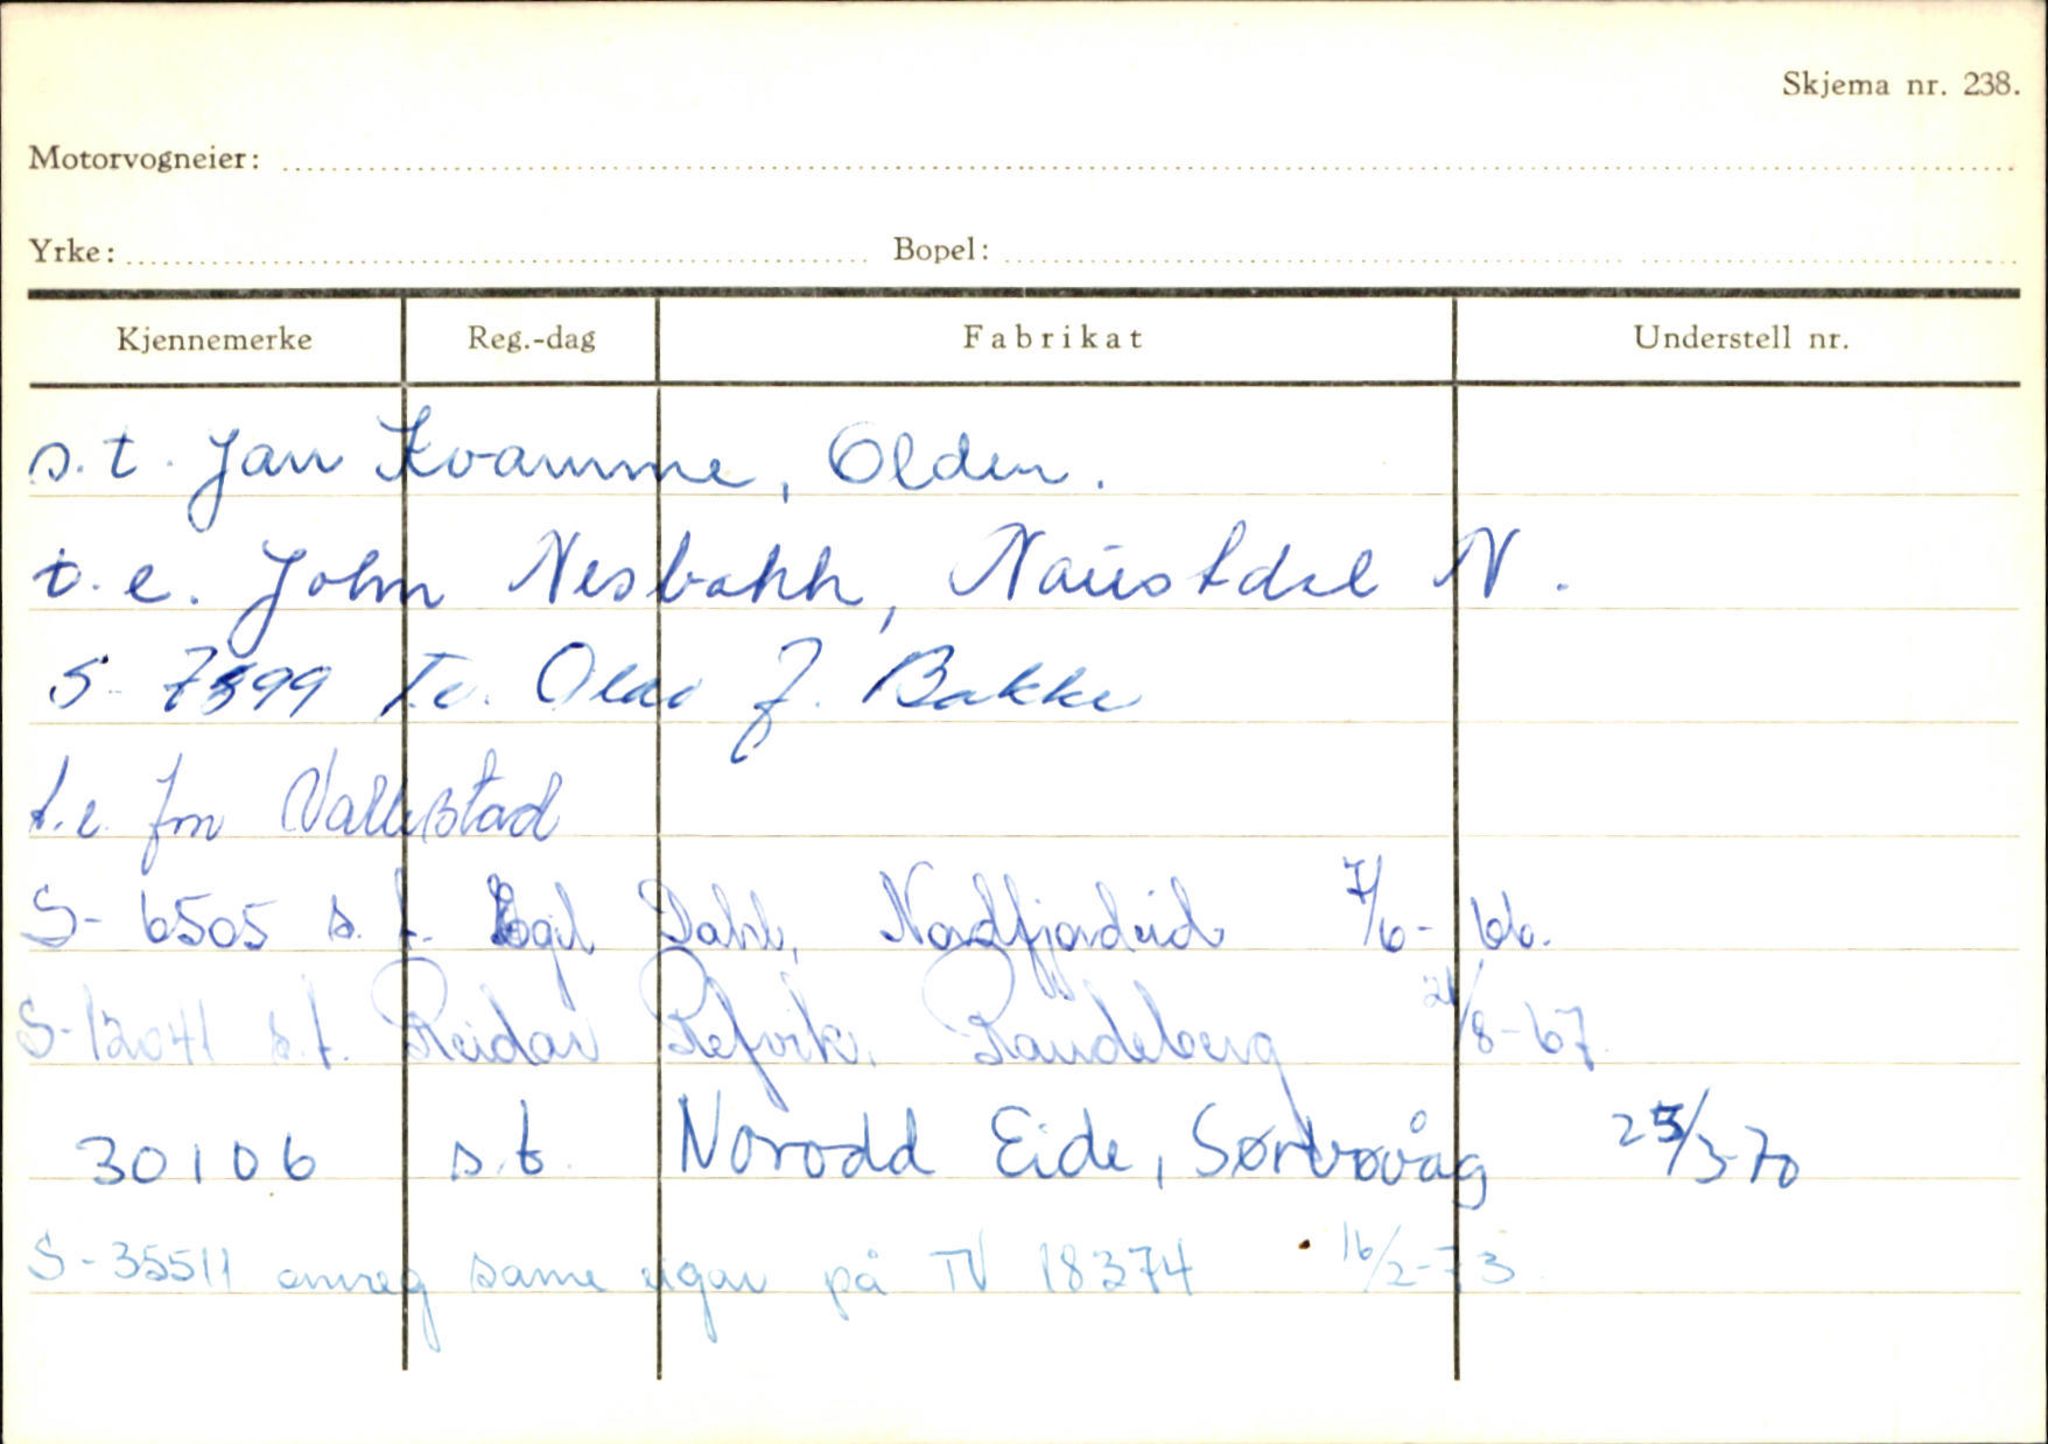 Skjema nr. 238.
Motorvogneier:
Yrke: Bopel:
Kjennemerke Reg.-dag Fabrikat Understell nr.
s.t. Jan Kvamme, Olden.
t.e. John Nesbakk, Naustdal N.
S-7599 T.e. Olav J. Bakke
t.e. fm Vallestad
S-6505 s.t. Egil Dahl, Nordfjordeid 7/6-66.
S-12041 s.t. Reidar Refvik, Raudeberg 21/8-67.
30106 s.t. Norodd Eide, Sørbøvåg 25/3-70
S-35511 omreg same eigar på TV 18374 16/2-73.